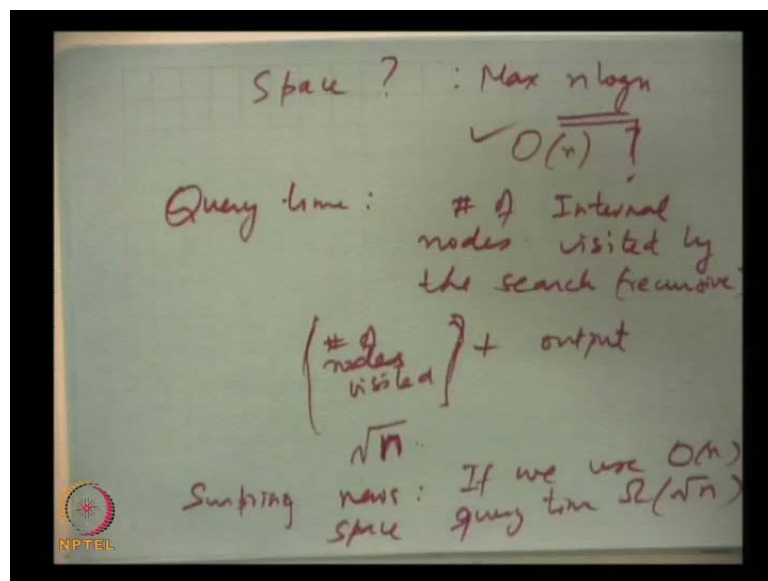 Space ? : Max nlogn
✓ O(n) ?
Query time : # of Internal
nodes visited by
the search (recursive)
(# of nodes visited) + output
√n
Surprising news : If we use O(n)
space query time Ω(√n)
NPTEL